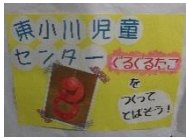 東小川児童
センター
ぐるぐるたこ
を
つくって
とばそう!